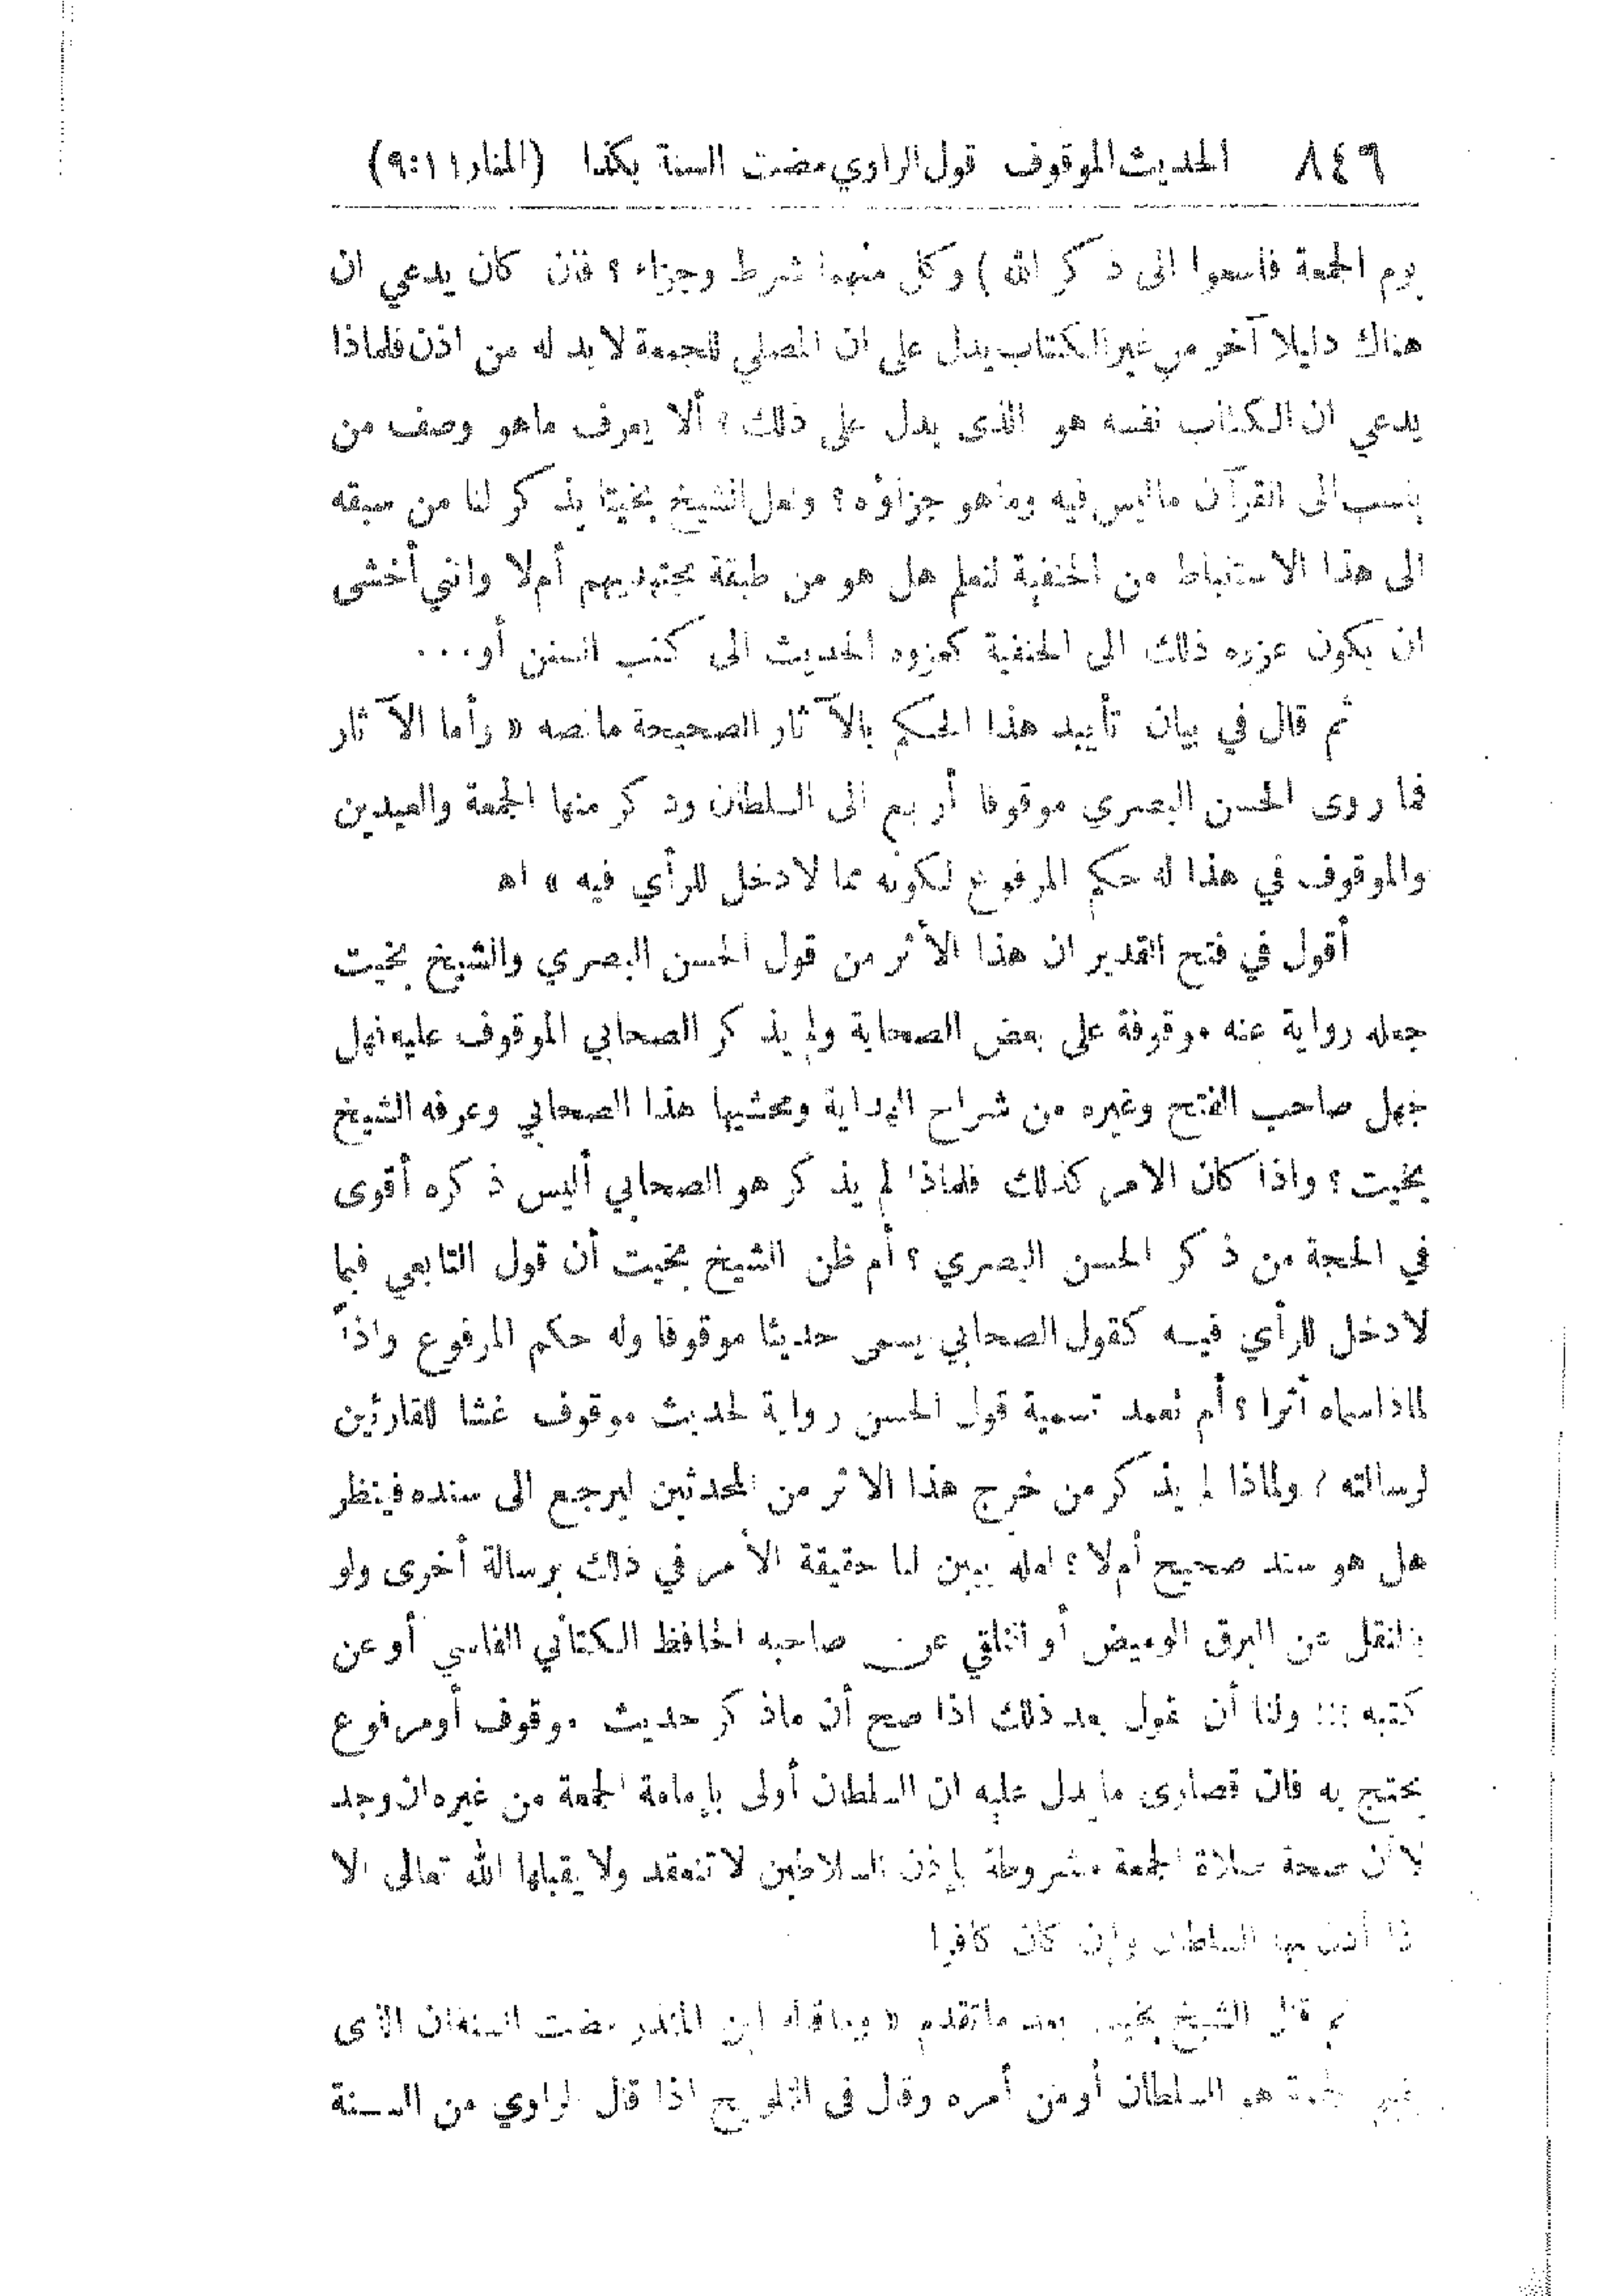 ٨٤٦ الحديث الموقوف قول الراوي مضت السنة بكذا (المنار ١١:٩)
يوم الجمعة فاسعوا الى ذكر الله) وكل منهما شرط وجزاء؟ فان كان يدعي ان
هناك دليلا آخر من غير الكتاب يدل على ان المصلي للجمعة لا بد له من اذن فلماذا
يدعي ان الكتاب نفسه هو الذى يدل على ذلك؟ ألا يعرف ماهو وصف من
ينسب الى القرآن ماليس فيه وماهو جزاؤه؟ ولعل الشيخ بخيتا يذكر لنا من سبقه
الى هذا الاستنباط من الحنفية لنعلم هل هو من طبقة مجتهديهم أم لا وانني أخشى
ان يكون عزوه ذلك الى الحنفية كعزوه الحديث الى كتب السنن أو...
ثم قال في بيان تأييد هذا الحكم بالآثار الصحيحة مانصه « وأما الآثار
فما روى الحسن البصري موقوفا أربع الى السلطان وذكر منها الجمعة والعيدين
والموقوف في هذا له حكم المرفوع لكونه مما لادخل للرأي فيه » اه
أقول في فتح القدير ان هذا الأثر من قول الحسن البصري والشيخ بخيت
جعله رواية عنه موقوفة على بعض الصحابة ولم يذكر الصحابي الموقوف عليه فهل
جهل صاحب الفتح وغيره من شراح الهداية ومحشيها هذا الصحابي وعرفه الشيخ
بخيت؟ واذا كان الامر كذلك فلماذا لم يذكر هو الصحابي أليس ذكره أقوى
في الحجة من ذكر الحسن البصري؟ أم ظن الشيخ بخيت أن قول التابعي فيما
لادخل للرأي فيه كقول الصحابي يسمى حديثا موقوفا وله حكم المرفوع واذاً
لماذا سماه أثرا؟ أم تعمد تسمية قول الحسن رواية لحديث موقوف غشا للقارئين
لرسالته؟ ولماذا لم يذكر من خرج هذا الاثر من المحدثين ليرجع الى سنده فينظر
هل هو سند صحيح أم لا؟ لعله يبين لنا حقيقة الأمر في ذلك برسالة أخرى ولو
بالنقل عن البرق الوميض أو التلقي عن صاحبه الحافظ الكتاني الفاسي أو عن
كتبه !!! ولنا أن نقول بعد ذلك اذا صح أن ماذكر حديث موقوف أومرفوع
يحتج به فان قصارى ما يدل عليه ان السلطان أولى بإمامة الجمعة من غيره ان وجد
لا أن صحة صلاة الجمعة مشروطة بإذن السلاطين لا تنعقد ولا يقبلها الله تعالى الا
اذا أذن بها السلطان وإن كان كافرا
ثم قال الشيخ بخيت بعد ماتقدم « وبما قاله ابن المنذر مضت السنة ان الذى
يقيم الجمعة هو السلطان أو من أمره وقال في التلويح اذا قال الراوي من السنة